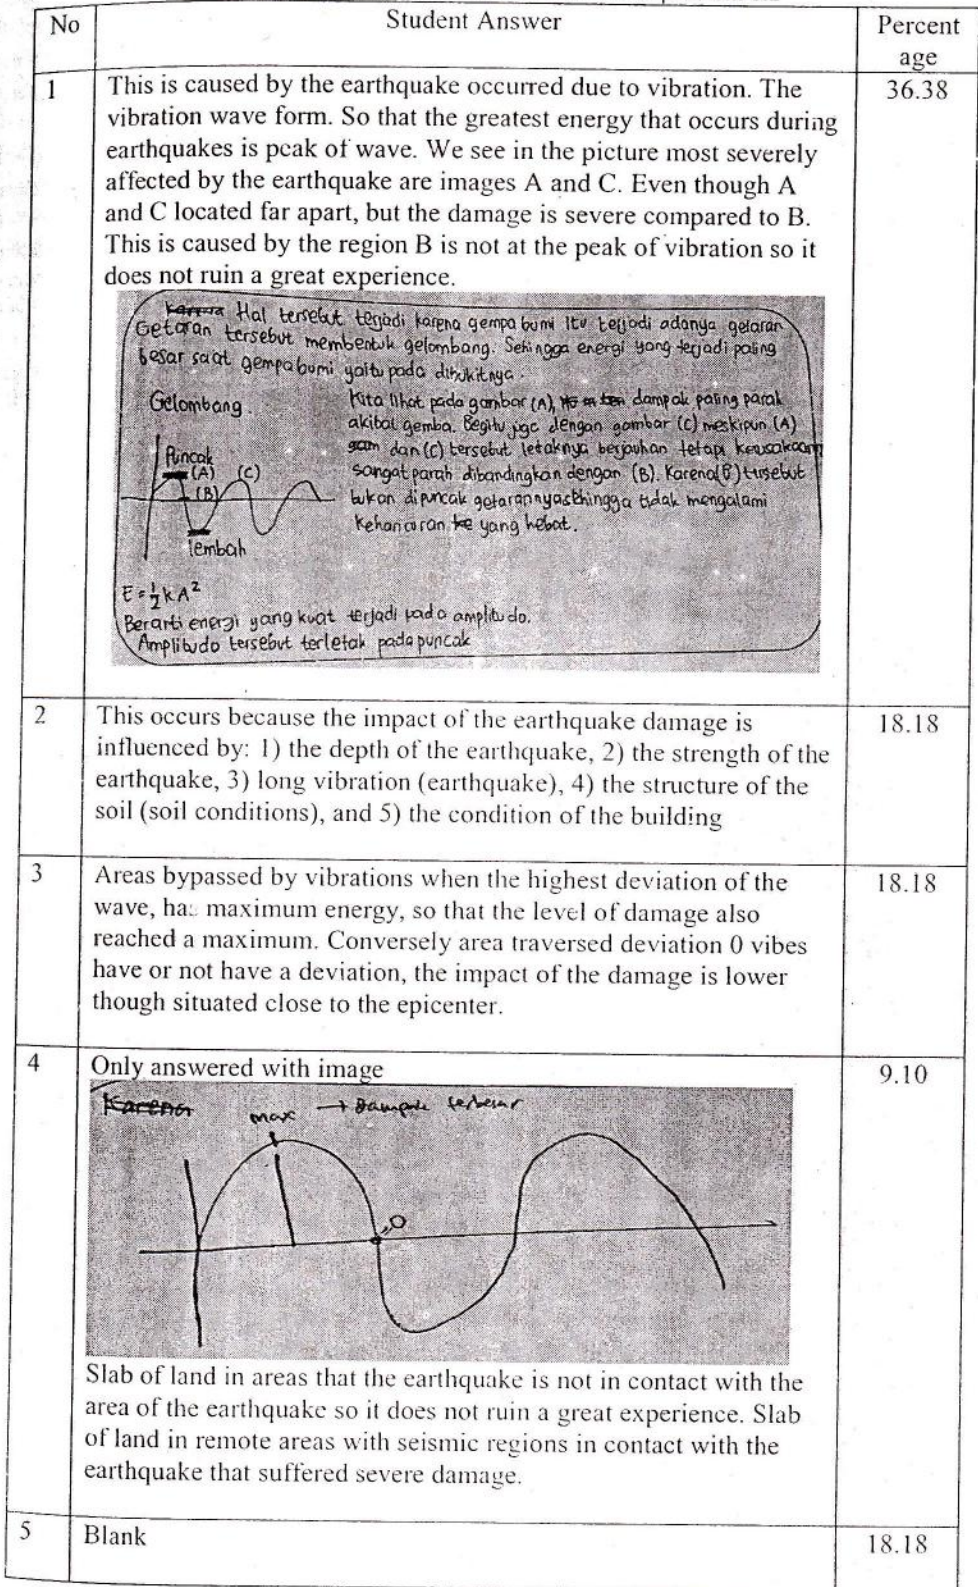 No
Student Answer
Percent
age
1
This is caused by the earthquake occurred due to vibration. The
vibration wave form. So that the greatest energy that occurs during
earthquakes is peak of wave. We see in the picture most severely
affected by the earthquake are images A and C. Even though A
and C located far apart, but the damage is severe compared to B.
This is caused by the region B is not at the peak of vibration so it
does not ruin a great experience.
36.38
Karena Hal tersebut terjadi karena gempa bumi itu terjadi adanya getaran
Getaran tersebut membentuk gelombang. Sehingga energi yang terjadi paling
besar saat gempabumi yaitu pada dibukitnya.
Gelombang.
Puncak
(A)
(C)
(B)
lembah
Kita lihat pada gambar (A), dampak paling parah
akibat gemba. Begitu juga dengan gambar (C) meskipun (A)
gam dan (C) tersebut letaknya berjauhan tetapi kerusakaan
sangat parah dibandingkan dengan (B). Karena (B) tersebut
bukan dipuncak getarannya sehingga tidak mengalami
kehancuran ke yang hebat.
E = ½ k A²
Berarti energi yang kuat terjadi pada amplitudo.
Amplitudo tersebut terletak pada puncak
2
This occurs because the impact of the earthquake damage is
influenced by: 1) the depth of the earthquake, 2) the strength of the
earthquake, 3) long vibration (earthquake), 4) the structure of the
soil (soil conditions), and 5) the condition of the building
18.18
3
Areas bypassed by vibrations when the highest deviation of the
wave, has maximum energy, so that the level of damage also
reached a maximum. Conversely area traversed deviation 0 vibes
have or not have a deviation, the impact of the damage is lower
though situated close to the epicenter.
18.18
4
Only answered with image
9.10
Karena
max → Dampak terbesar
0
Slab of land in areas that the earthquake is not in contact with the
area of the earthquake so it does not ruin a great experience. Slab
of land in remote areas with seismic regions in contact with the
earthquake that suffered severe damage.
5
Blank
18.18